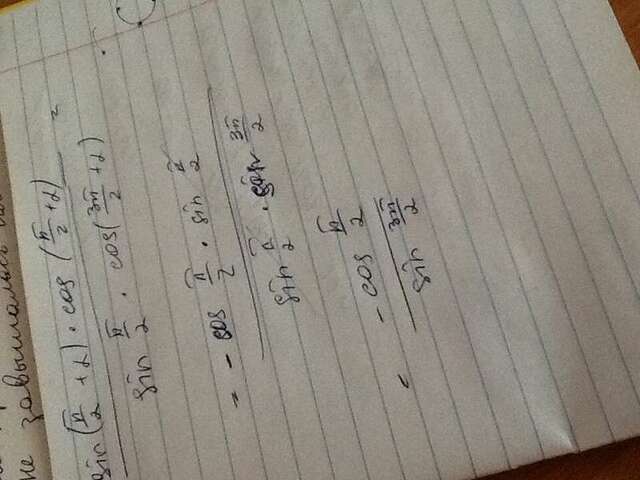 не завышалась
sin(π/2 + α) · cos(π/2 + α) =
sin π/2 · cos(3π/2 + α)
= - cos π/2 · sin π/2
sin π/2 · sin 3π/2
= - cos π/2
sin 3π/2